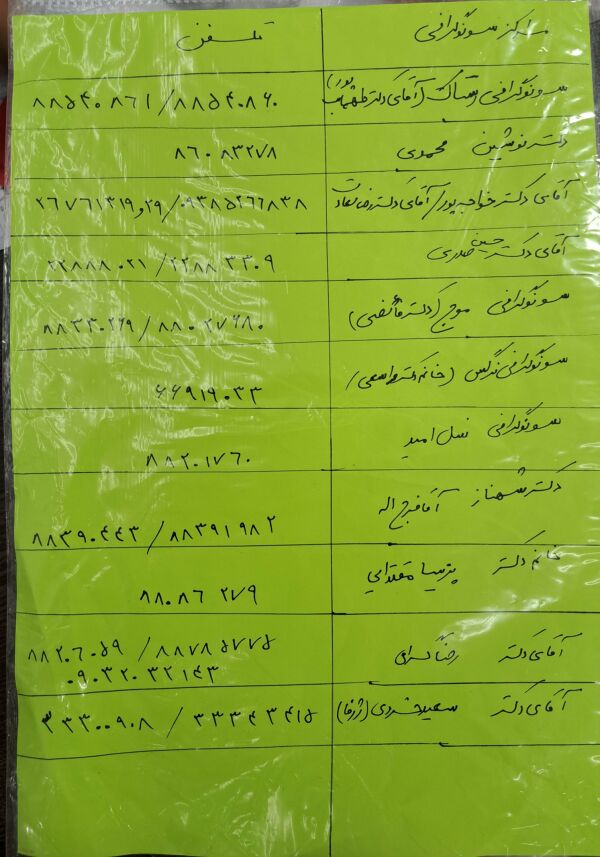 مراکز سونوگرافی تلفن
سونوگرافی (آقای دکتر طهماسب پور) ۸۸۵۴۰۸۶۱ / ۸۸۵۴۰۸۶۰
دکتر نوشین محمدی ۸۶۰۸۳۲۷۸
آقای دکتر خواجه پور / آقای دکتر رضا ۲۶۷۶۱۳۱۹و۲۹ / ۰۹۳۸۵۲۶۶۸۳۸
آقای دکتر حسین صدری ۲۲۸۸۸۰۲۱ / ۲۲۸۸۳۳۰۹
سونوگرافی موج (دکتر قائضی) ۸۸۳۳۰۲۶۹ / ۸۸۰۲۷۶۸۰
سونوگرافی نرگس (خانم دکتر مراسمی) ۶۶۹۱۹۰۳۳
سونوگرافی نسل امید ۸۸۲۰۱۷۶۰
دکتر شهناز آقافرج اله ۸۸۳۹۰۴۴۳ / ۸۸۳۹۱۹۸۲
خانم دکتر پریسا مقتدایی ۸۸۰۸۶۲۷۹
آقای دکتر رضا ۸۸۲۰۶۰۵۹ / ۸۸۷۸۵۷۷۵
۰۹۰۳۲۰۳۲۱۴۳
آقای دکتر سعید خسروی (ژرفا) ۳۳۳۰۰۹۰۸ / ۳۳۳۴۳۴۱۵